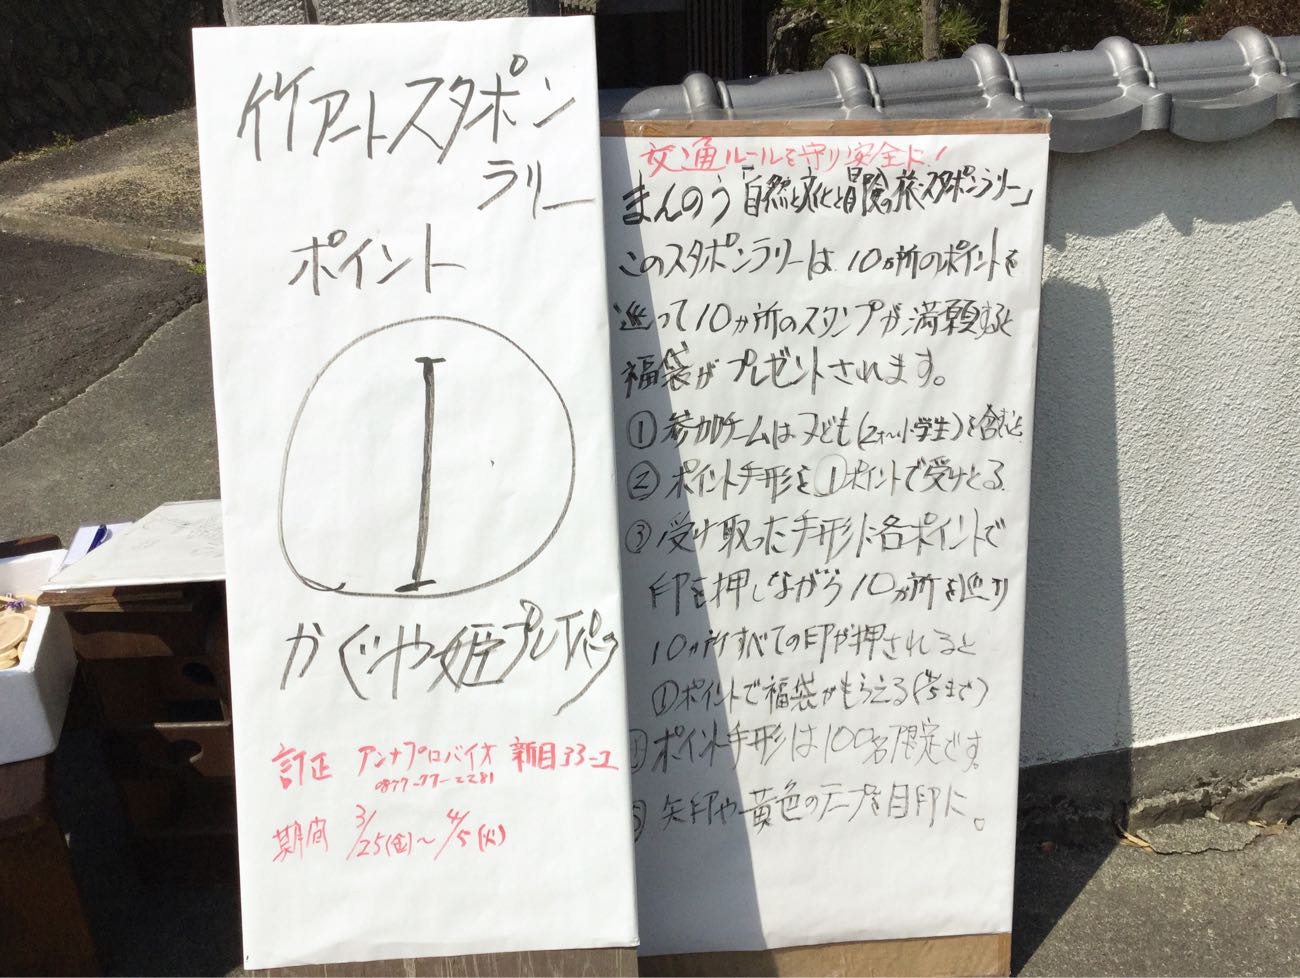 竹アートスタポン
ラリー
ポイント
1
かぐや姫プレイパーク
訂正 アンナプロバイオ 新目33-1
0877-77-2281
期間 3/25(金)〜4/5(火)
交通ルールを守り安全に!
まんのう「自然と文化と冒険の旅・スタポンラリー」
このスタポンラリーは、10か所のポイントを
巡って10か所のスタンプが満願すると
福袋がプレゼントされます。
①参加チームは子ども(2才〜小学生)を含むこと
②ポイント手形を①ポイントで受けとる
③受け取った手形に各ポイントで
印を押しながら10か所を巡り
10か所すべての印が押されると
①ポイントで福袋がもらえる(4/5まで)
④ポイント手形は100名限定です。
⑤矢印や黄色のテープを目印に。